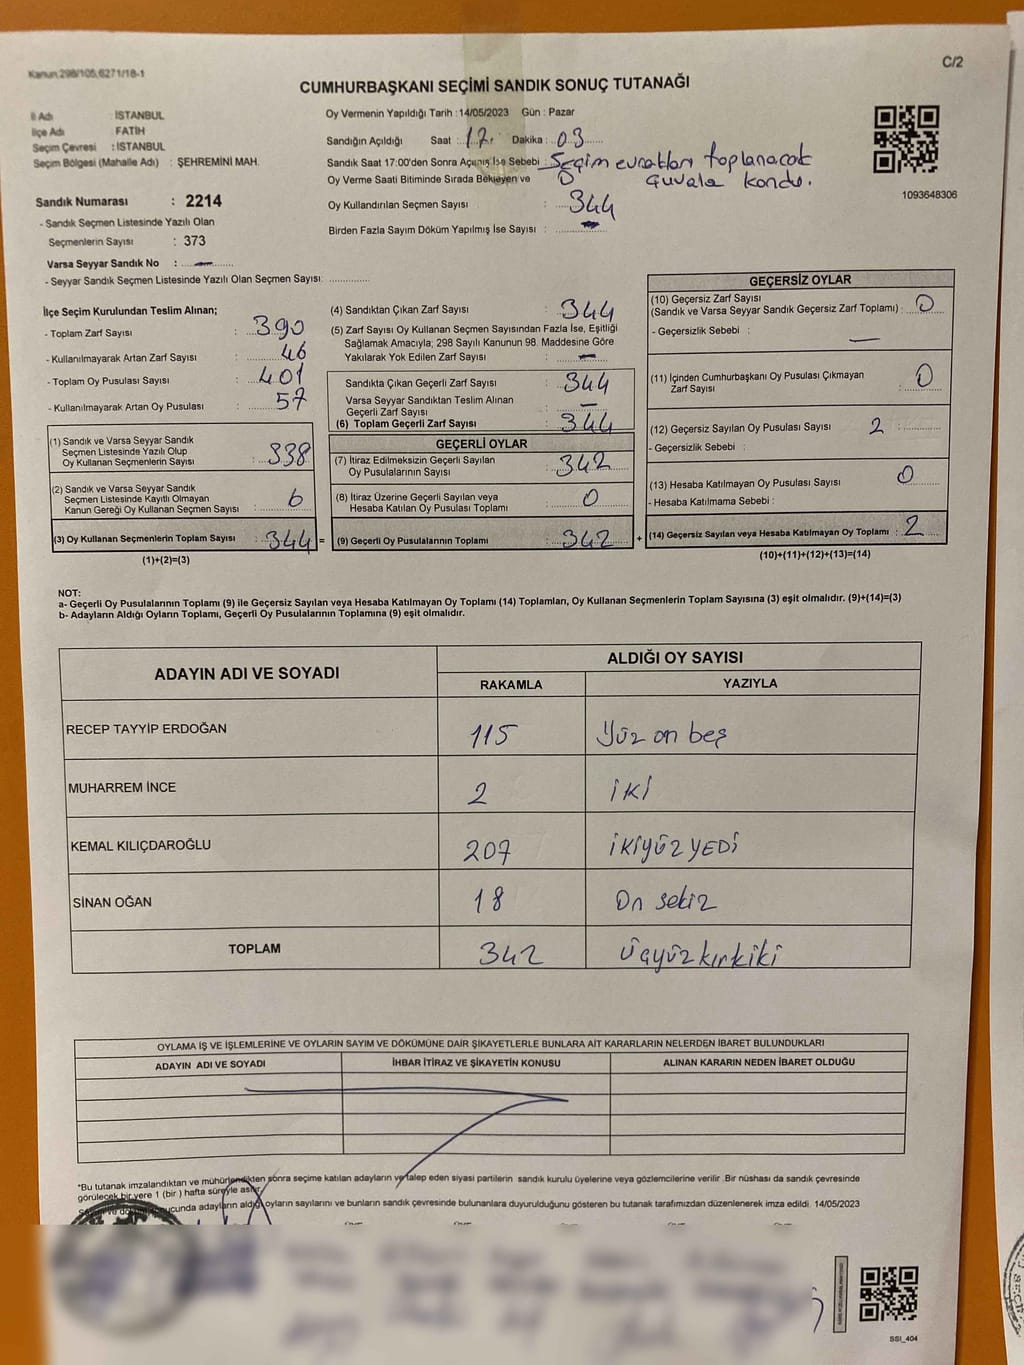 Kanun:298/105,6271/18-1
C/2
CUMHURBAŞKANI SEÇİMİ SANDIK SONUÇ TUTANAĞI
İl Adı : İSTANBUL
İlçe Adı : FATİH
Seçim Çevresi : İSTANBUL
Seçim Bölgesi (Mahalle Adı) : ŞEHREMİNİ MAH.
Sandık Numarası : 2214
- Sandık Seçmen Listesinde Yazılı Olan
Seçmenlerin Sayısı : 373
Varsa Seyyar Sandık No : —
- Seyyar Sandık Seçmen Listesinde Yazılı Olan Seçmen Sayısı:
Oy Vermenin Yapıldığı Tarih : 14/05/2023 Gün : Pazar
Sandığın Açıldığı Saat : 17 Dakika : 03
Sandık Saat 17:00'den Sonra Açılmış İse Sebebi : Seçim evrakları toplanacak
Oy Verme Saati Bitiminde Sırada Bekleyen ve çuvala kondu.
Oy Kullandırılan Seçmen Sayısı : 344
Birden Fazla Sayım Döküm Yapılmış İse Sayısı : —
1093648306
İlçe Seçim Kurulundan Teslim Alınan;
- Toplam Zarf Sayısı : 390
- Kullanılmayarak Artan Zarf Sayısı : 46
- Toplam Oy Pusulası Sayısı : 401
- Kullanılmayarak Artan Oy Pusulası : 57
(1) Sandık ve Varsa Seyyar Sandık
Seçmen Listesinde Yazılı Olup
Oy Kullanan Seçmenlerin Sayısı : 338
(2) Sandık ve Varsa Seyyar Sandık
Seçmen Listesinde Kayıtlı Olmayan
Kanun Gereği Oy Kullanan Seçmen Sayısı : 6
(3) Oy Kullanan Seçmenlerin Toplam Sayısı : 344 =
(1)+(2)=(3)
(4) Sandıktan Çıkan Zarf Sayısı : 344
(5) Zarf Sayısı Oy Kullanan Seçmen Sayısından Fazla İse, Eşitliği
Sağlamak Amacıyla; 298 Sayılı Kanunun 98. Maddesine Göre
Yakılarak Yok Edilen Zarf Sayısı : —
Sandıkta Çıkan Geçerli Zarf Sayısı : 344
Varsa Seyyar Sandıktan Teslim Alınan
Geçerli Zarf Sayısı : —
(6) Toplam Geçerli Zarf Sayısı : 344
GEÇERLİ OYLAR
(7) İtiraz Edilmeksizin Geçerli Sayılan
Oy Pusulalarının Sayısı : 342
(8) İtiraz Üzerine Geçerli Sayılan veya
Hesaba Katılan Oy Pusulası Toplamı : 0
(9) Geçerli Oy Pusulalarının Toplamı : 342 +
GEÇERSİZ OYLAR
(10) Geçersiz Zarf Sayısı
(Sandık ve Varsa Seyyar Sandık Geçersiz Zarf Toplamı) : 0
- Geçersizlik Sebebi : —
(11) İçinden Cumhurbaşkanı Oy Pusulası Çıkmayan
Zarf Sayısı : 0
(12) Geçersiz Sayılan Oy Pusulası Sayısı 2 :
- Geçersizlik Sebebi :
(13) Hesaba Katılmayan Oy Pusulası Sayısı : 0
- Hesaba Katılmama Sebebi :
(14) Geçersiz Sayılan veya Hesaba Katılmayan Oy Toplamı : 2
(10)+(11)+(12)+(13)=(14)
NOT:
a- Geçerli Oy Pusulalarının Toplamı (9) ile Geçersiz Sayılan veya Hesaba Katılmayan Oy Toplamı (14) Toplamları, Oy Kullanan Seçmenlerin Toplam Sayısına (3) eşit olmalıdır. (9)+(14)=(3)
b- Adayların Aldığı Oyların Toplamı, Geçerli Oy Pusulalarının Toplamına (9) eşit olmalıdır.
ADAYIN ADI VE SOYADI ALDIĞI OY SAYISI
RAKAMLA YAZIYLA
RECEP TAYYİP ERDOĞAN 115 Yüz on beş
MUHARREM İNCE 2 iKi
KEMAL KILIÇDAROĞLU 207 iKiYÜZ YEDi
SİNAN OĞAN 18 On sekiz
TOPLAM 342 Üçyüzkırkiki
OYLAMA İŞ VE İŞLEMLERİNE VE OYLARIN SAYIM VE DÖKÜMÜNE DAİR ŞİKAYETLERLE BUNLARA AİT KARARLARIN NELERDEN İBARET BULUNDUKLARI
ADAYIN ADI VE SOYADI İHBAR İTİRAZ VE ŞİKAYETİN KONUSU ALINAN KARARIN NEDEN İBARET OLDUĞU
*Bu tutanak imzalandıktan ve mühürlendikten sonra seçime katılan adayların ve talep eden siyasi partilerin sandık kurulu üyelerine veya gözlemcilerine verilir. Bir nüshası da sandık çevresinde
görülecek bir yere 1 (bir) hafta süreyle asılır.
adayların aldığı oyların sayılarını ve bunların sandık çevresinde bulunanlara duyurulduğunu gösteren bu tutanak tarafımızdan düzenlenerek imza edildi. 14/05/2023
SSI_404